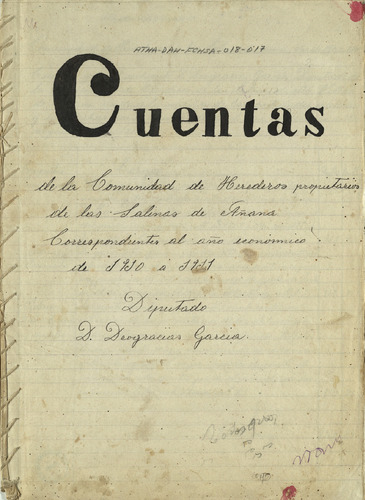 ATHA-DAH-FCHSA-018-017
Cuentas
de la Comunidad de Herederos propietarios
de las Salinas de Añana
Correspondientes al año económico
de 1910 a 1911
Diputado
D. Deogracias García.